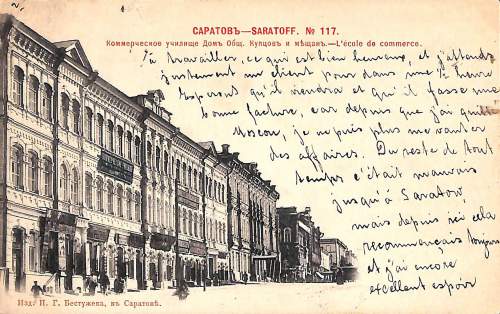 САРАТОВЪ—SARATOFF. № 117.
Коммерческое училище Домъ Общ. Купцовъ и мѣщанъ.—L'école de commerce.
à travailler, ce qui est bien heureux, et j'attends
justement un client pour dans une ½ heure
Esperons qu'il viendra et qu'il fasse une
bonne facture, car depuis que j'ai quitté
Moscou, je ne puis plus me vanter
des affaires. Du reste de tout
temps c'était mauvais
jusqu'à Saratow,
mais depuis ici cela
recommençais toujours
et j'ai encore
excellent espoir
Изд. П. Г. Бестужева, въ Саратовѣ.